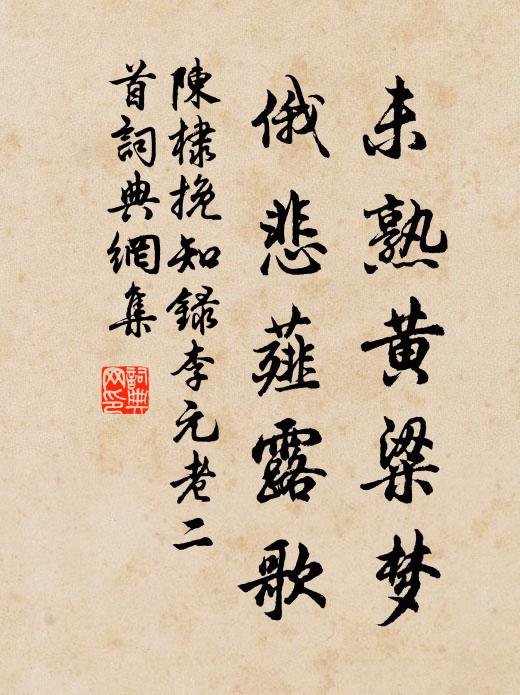 未熟黄粱梦
俄悲薤露歌
陳棣挽知録李元老二
首詞典網集
詞典网印